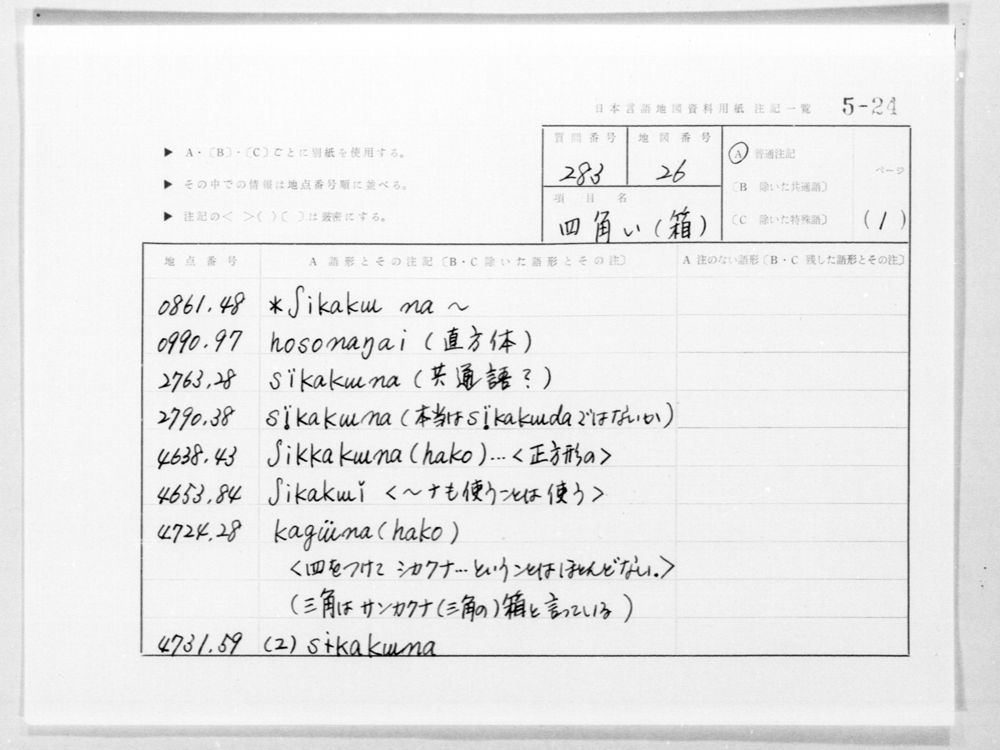 日本言語地図資料用紙 注記一覧 5-24
▶ A・〔B〕・〔C〕ごとに別紙を使用する。
▶ その中での情報は地点番号順に並べる。
▶ 注記の< >( )〔 〕は厳密にする。
質問番号 地図番号
283 26
項目名
四角い(箱)
Ⓐ 普通注記
〔B 除いた共通語〕
〔C 除いた特殊語〕
ページ
(1)
地点番号 A 語形とその注記〔B・C 除いた語形とその注〕 A 注のない語形〔B・C 残した語形とその注〕
0861.48 *ʃikakɯ na ~
0990.97 hosonaŋai (直方体)
2763.28 sïkakɯna (共通語?)
2790.38 sï̥kakɯna (本当はsï̥kakɯdaではないか)
4638.43 ʃikkakɯna (hako)…<正方形の>
4653.84 ʃikakɯï <~ナも使うことは使う>
4724.28 kagɯ̈na (hako)
<四をつけて シカクナ…ということはほとんどない。>
(三角は サンカクナ(三角の)箱と言っている)
4731.59 (2) sɨkakɯna